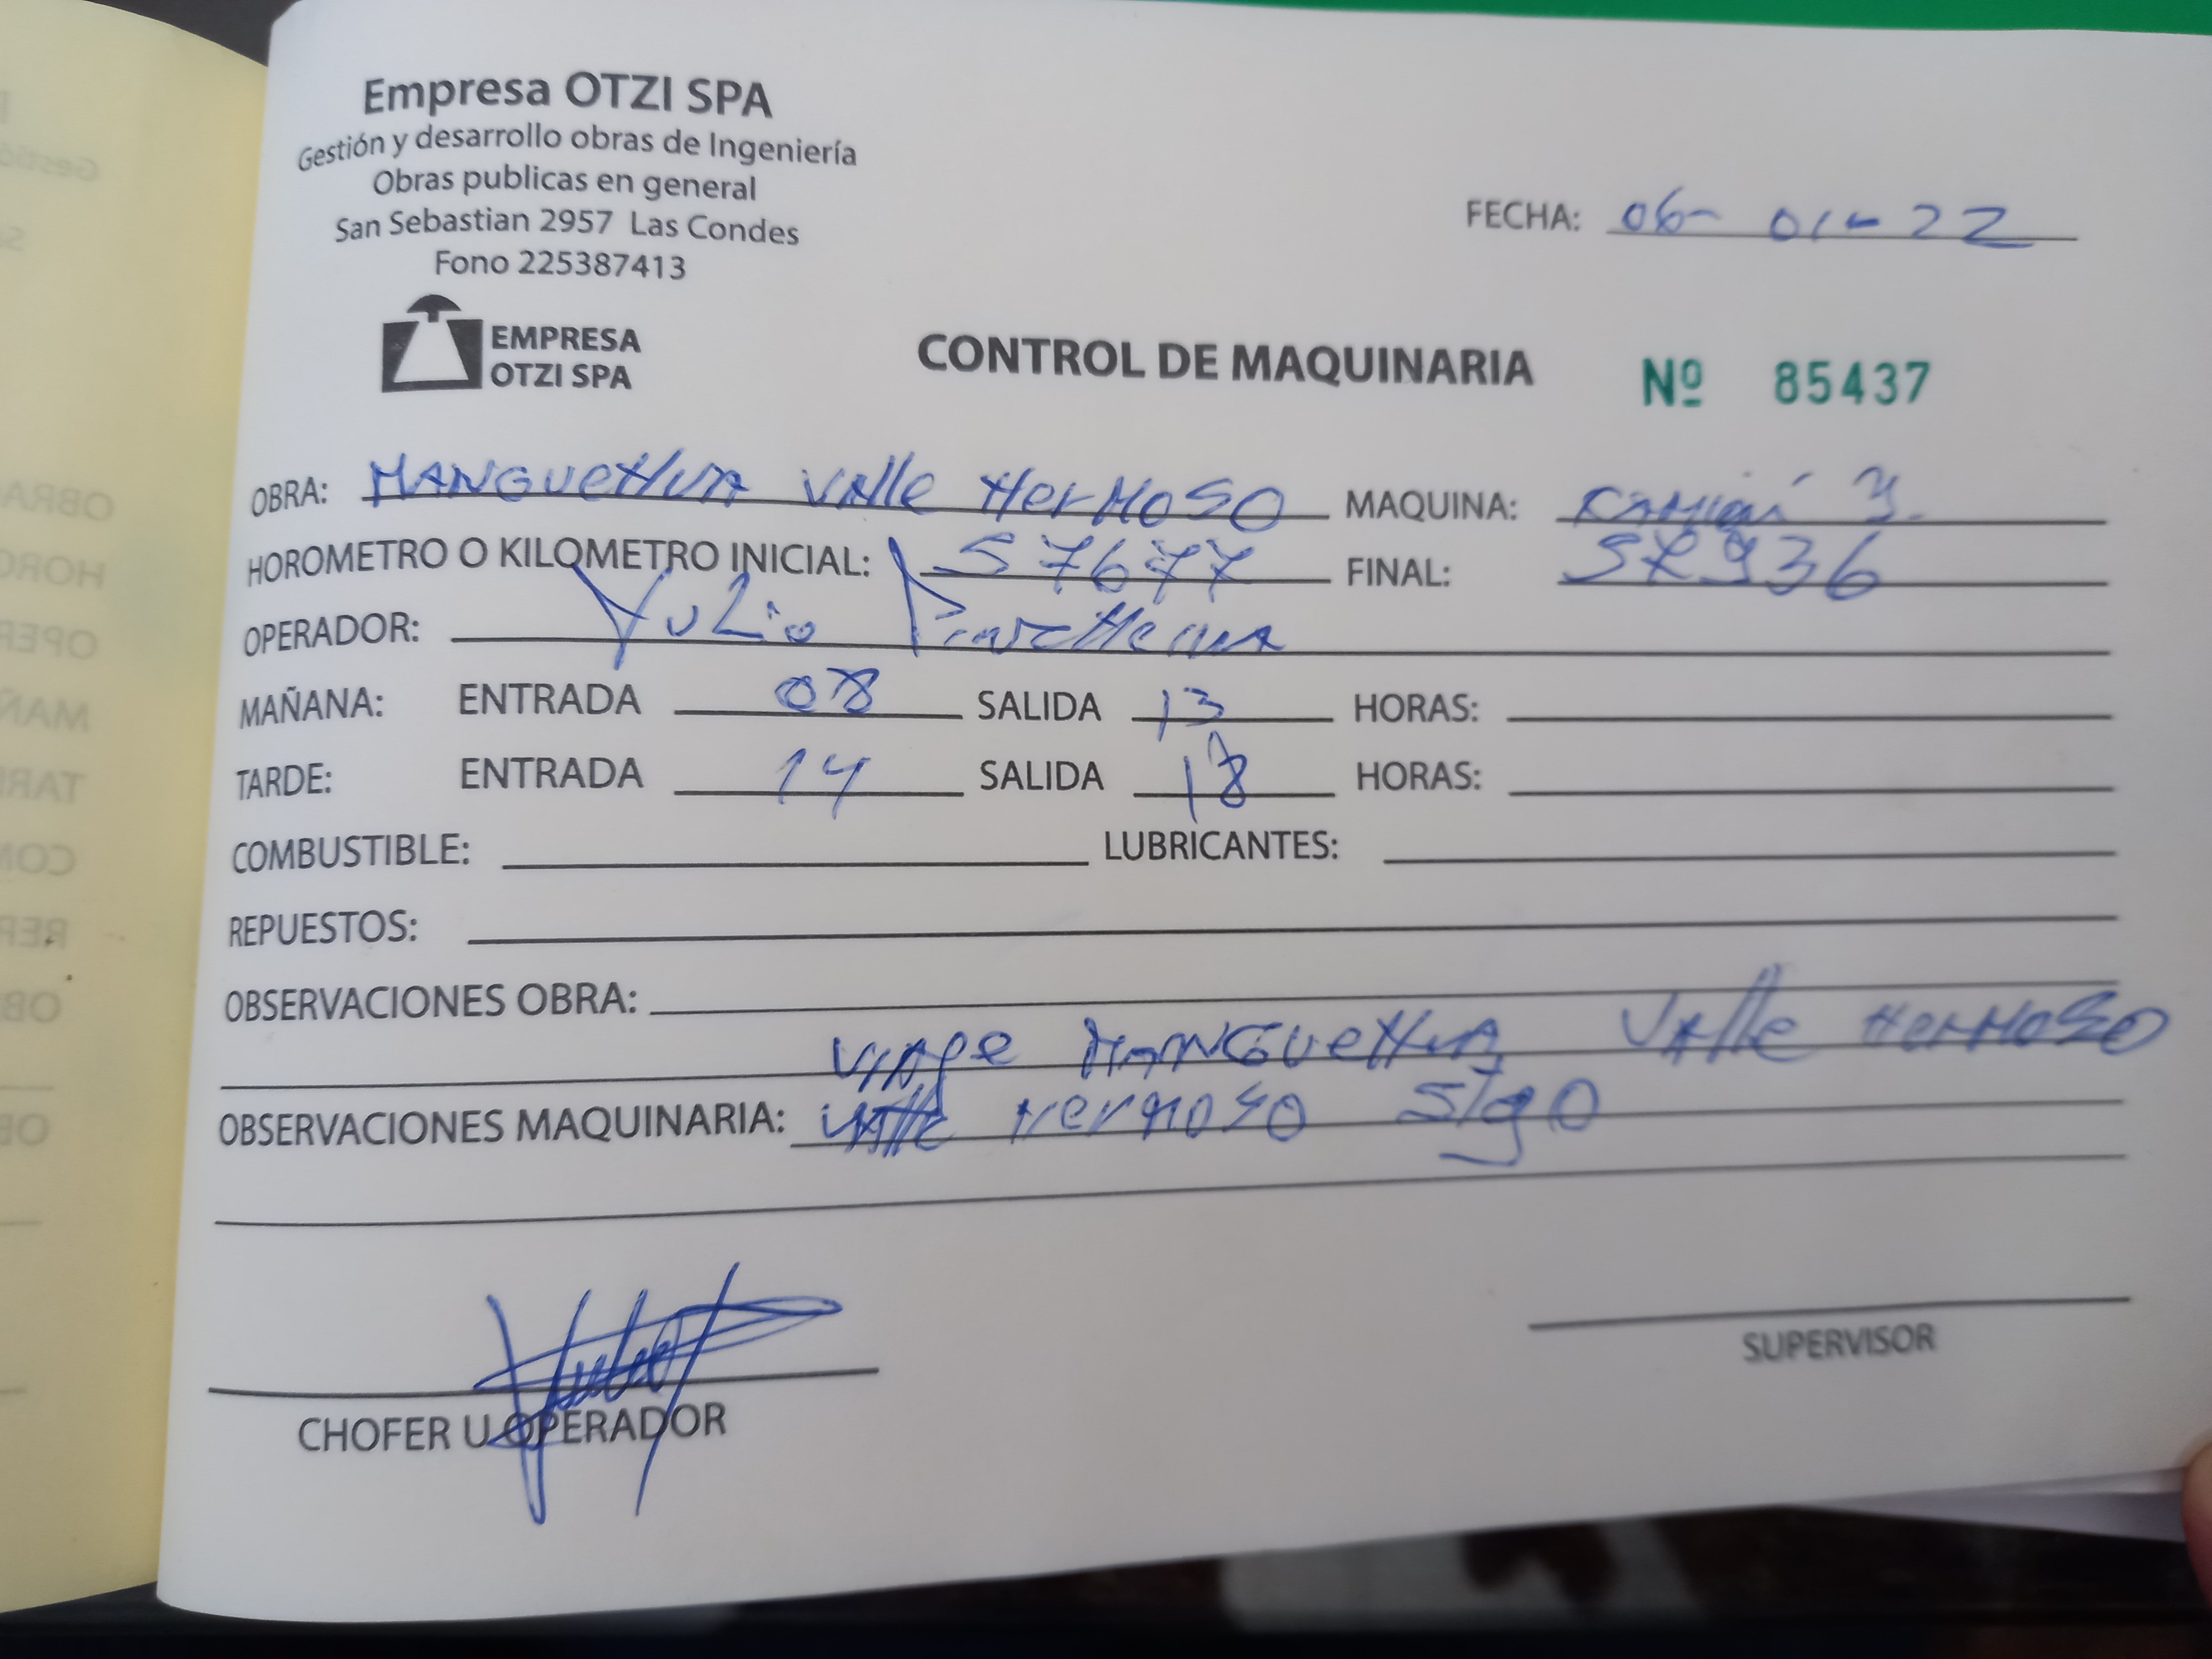 Empresa OTZI SPA
Gestión y desarrollo obras de Ingeniería
Obras publicas en general
San Sebastian 2957 Las Condes
Fono 225387413
FECHA: 06-01-22
EMPRESA
OTZI SPA
CONTROL DE MAQUINARIA Nº 85437
OBRA: MANGueHuA VAlle HerMoSO MAQUINA: CAMión 3.
HOROMETRO O KILOMETRO INICIAL: 57677 FINAL:
OPERADOR: YuLio
MAÑANA: ENTRADA 08 SALIDA 13 HORAS:
TARDE: ENTRADA 14 SALIDA 18 HORAS:
COMBUSTIBLE: LUBRICANTES:
REPUESTOS:
OBSERVACIONES OBRA:
VIAJe MANGueHuA VAlle HerMoSO
OBSERVACIONES MAQUINARIA: VAlle HerMoSO
CHOFER U OPERADOR
SUPERVISOR